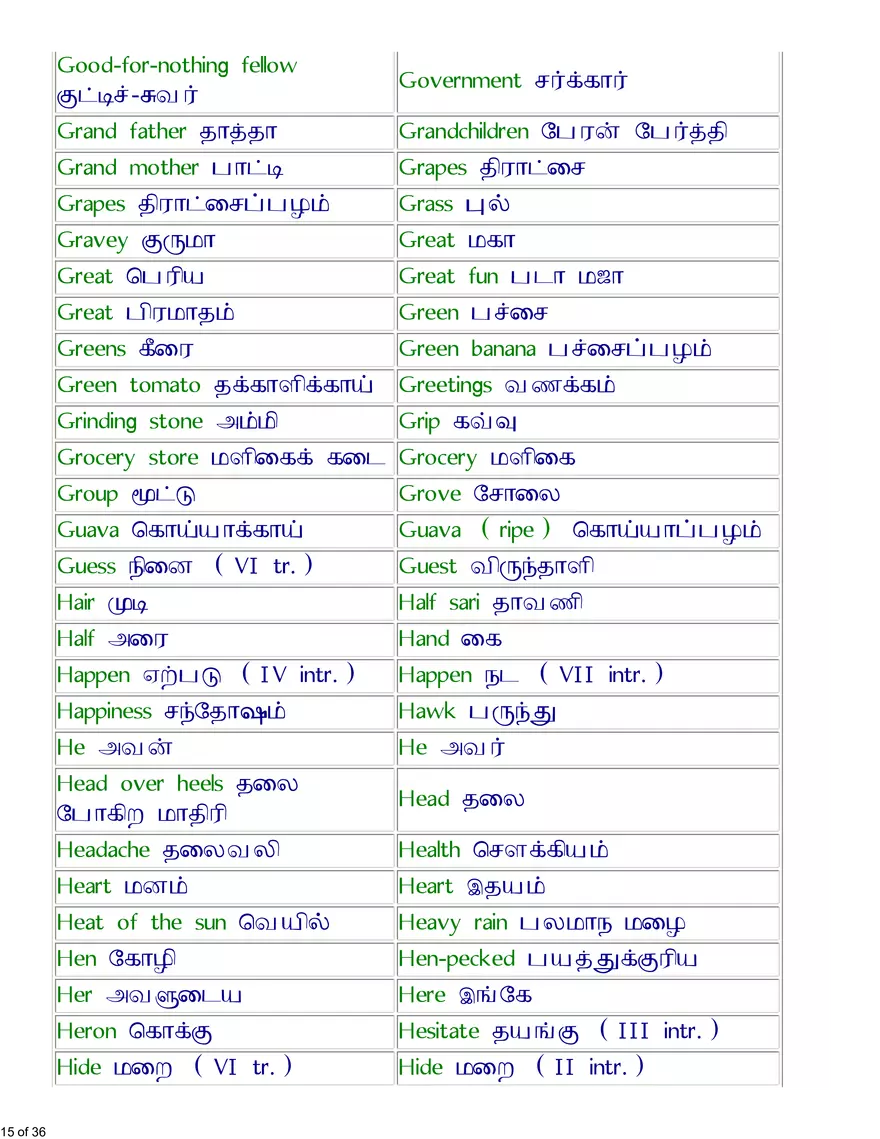 Good-for-nothing fellow
குட்டிச்-சுவர்
Government சர்க்கார்
Grand father தாத்தா
Grandchildren பேரன் பேர்த்தி
Grand mother பாட்டி
Grapes திராட்சை
Grapes திராட்சைப்பழம்
Grass புல்
Gravey குருமா
Great மகா
Great பெரிய
Great fun படா மஜா
Great பிரமாதம்
Green பச்சை
Greens கீரை
Green banana பச்சைப்பழம்
Green tomato தக்காளிக்காய்
Greetings வணக்கம்
Grinding stone அம்மி
Grip கவ்வு
Grocery store மளிகைக் கடை
Grocery மளிகை
Group மூட்டு
Grove சோலை
Guava கொய்யாக்காய்
Guava ( ripe ) கொய்யாப்பழம்
Guess நினை ( VI tr. )
Guest விருந்தாளி
Hair முடி
Half sari தாவணி
Half அரை
Hand கை
Happen ஏற்படு ( IV intr. )
Happen நட ( VII intr. )
Happiness சந்தோஷம்
Hawk பருந்து
He அவன்
He அவர்
Head over heels தலை
போகிற மாதிரி
Head தலை
Headache தலைவலி
Health சௌக்கியம்
Heart மனம்
Heart இதயம்
Heat of the sun வெயில்
Heavy rain பலமாந மழை
Hen கோழி
Hen-pecked பயத்துக்குரிய
Her அவளுடைய
Here இங்கே
Heron கொக்கு
Hesitate தயங்கு ( III intr. )
Hide மறை ( VI tr. )
Hide மறை ( II intr. )
15 of 36